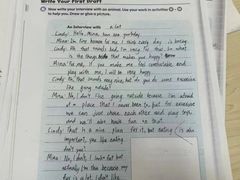 Write Your First Draft
Now write your interview with an animal. Use your work in activities
to help you. Draw or glue a picture.
An Interview with a cat
Cindy: Hello, Mina, how are you today
Mina: I'm tired because I think every day is boring.
Cindy: Ah that sounds bad, I'm sorry for that. So what
is the things that makes you happy
Mina: For me, if you make me feel comfortable, and
play with me, I will be very happy.
Cindy: Ok, that sounds very nice, but do you do some exercise
like going outside?
Mina: No, I don't like going outside because I'm afraid
of a place that I never been to, but for exercise
we can just chase each other and play toys,
and we'll also have fun in that.
Cindy: that is a nice place for it, but eating is also
important, do you like eating,
don't you?
Mina: No, I don't, I look fat but
actually I'm thin because my
fur is a lot, I don't like